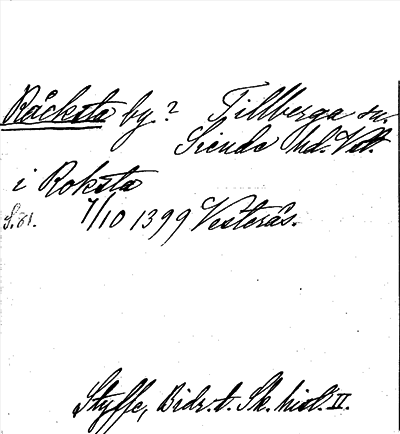 Råcksta by? Tillberga sn.
Siende hd. Vstl.
i Roksta
S. 81. 7/10 1399 Vesterås.
Styffe, Bidr. t. Sk. hist. II.